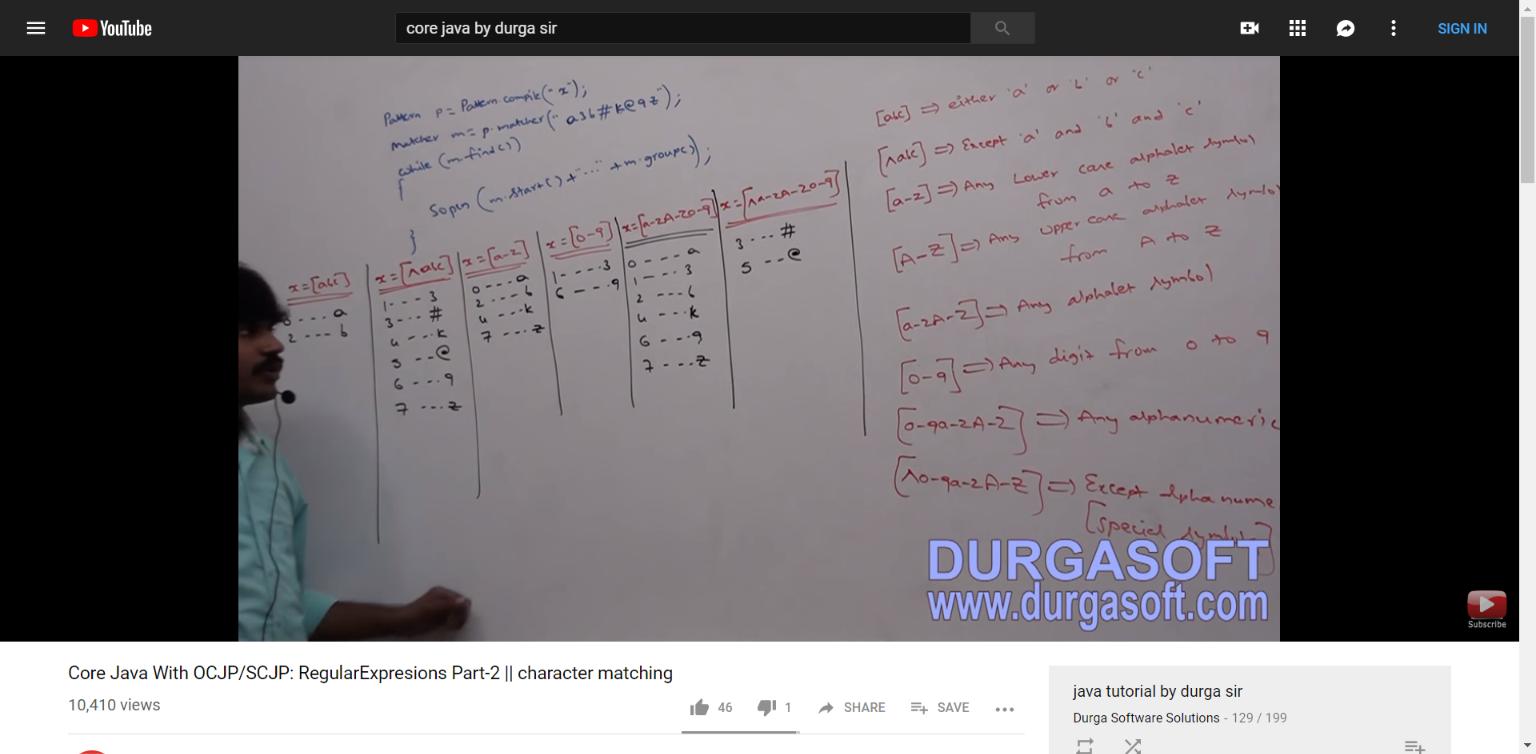 YouTube
core java by durga sir
SIGN IN
Pattern p = Pattern.compile("x");
Matcher m = p.matcher("a3b#k@9z");
while (m.find())
{
Sopln (m.start() + "...." + m.group());
}
x=[abc]
0 .... a
2 .... b
x=[^abc]
1 --- 3
3 ... #
4 ... k
5 --@
6 --- 9
7 --- z
x=[a-z]
0 .... a
2 .... b
4 ... k
7 ... z
x=[0-9]
1 .... 3
6 --- 9
x=[a-zA-Z0-9]
0 .... a
1 --- 3
2 --- b
4 --- k
6 --- 9
7 ---- z
x=[^a-zA-Z0-9]
3 ... #
5 ...@
[abc] => either 'a' or 'b' or 'c'
[^abc] => Except 'a' and 'b' and 'c'
[a-z] => Any Lower case alphabet symbol
from a to z
[A-Z] => Any upper case alphabet symbol
from A to Z
[a-zA-Z] => Any alphabet symbol
[0-9] => Any digit from 0 to 9
[0-9a-zA-Z] => Any alphanumeric
[^0-9a-zA-Z] => Except alpha nume
[special symbols]
DURGASOFT
www.durgasoft.com
Subscribe
Core Java With OCJP/SCJP: RegularExpresions Part-2 || character matching
10,410 views
46
1
SHARE
SAVE
java tutorial by durga sir
Durga Software Solutions - 129 / 199